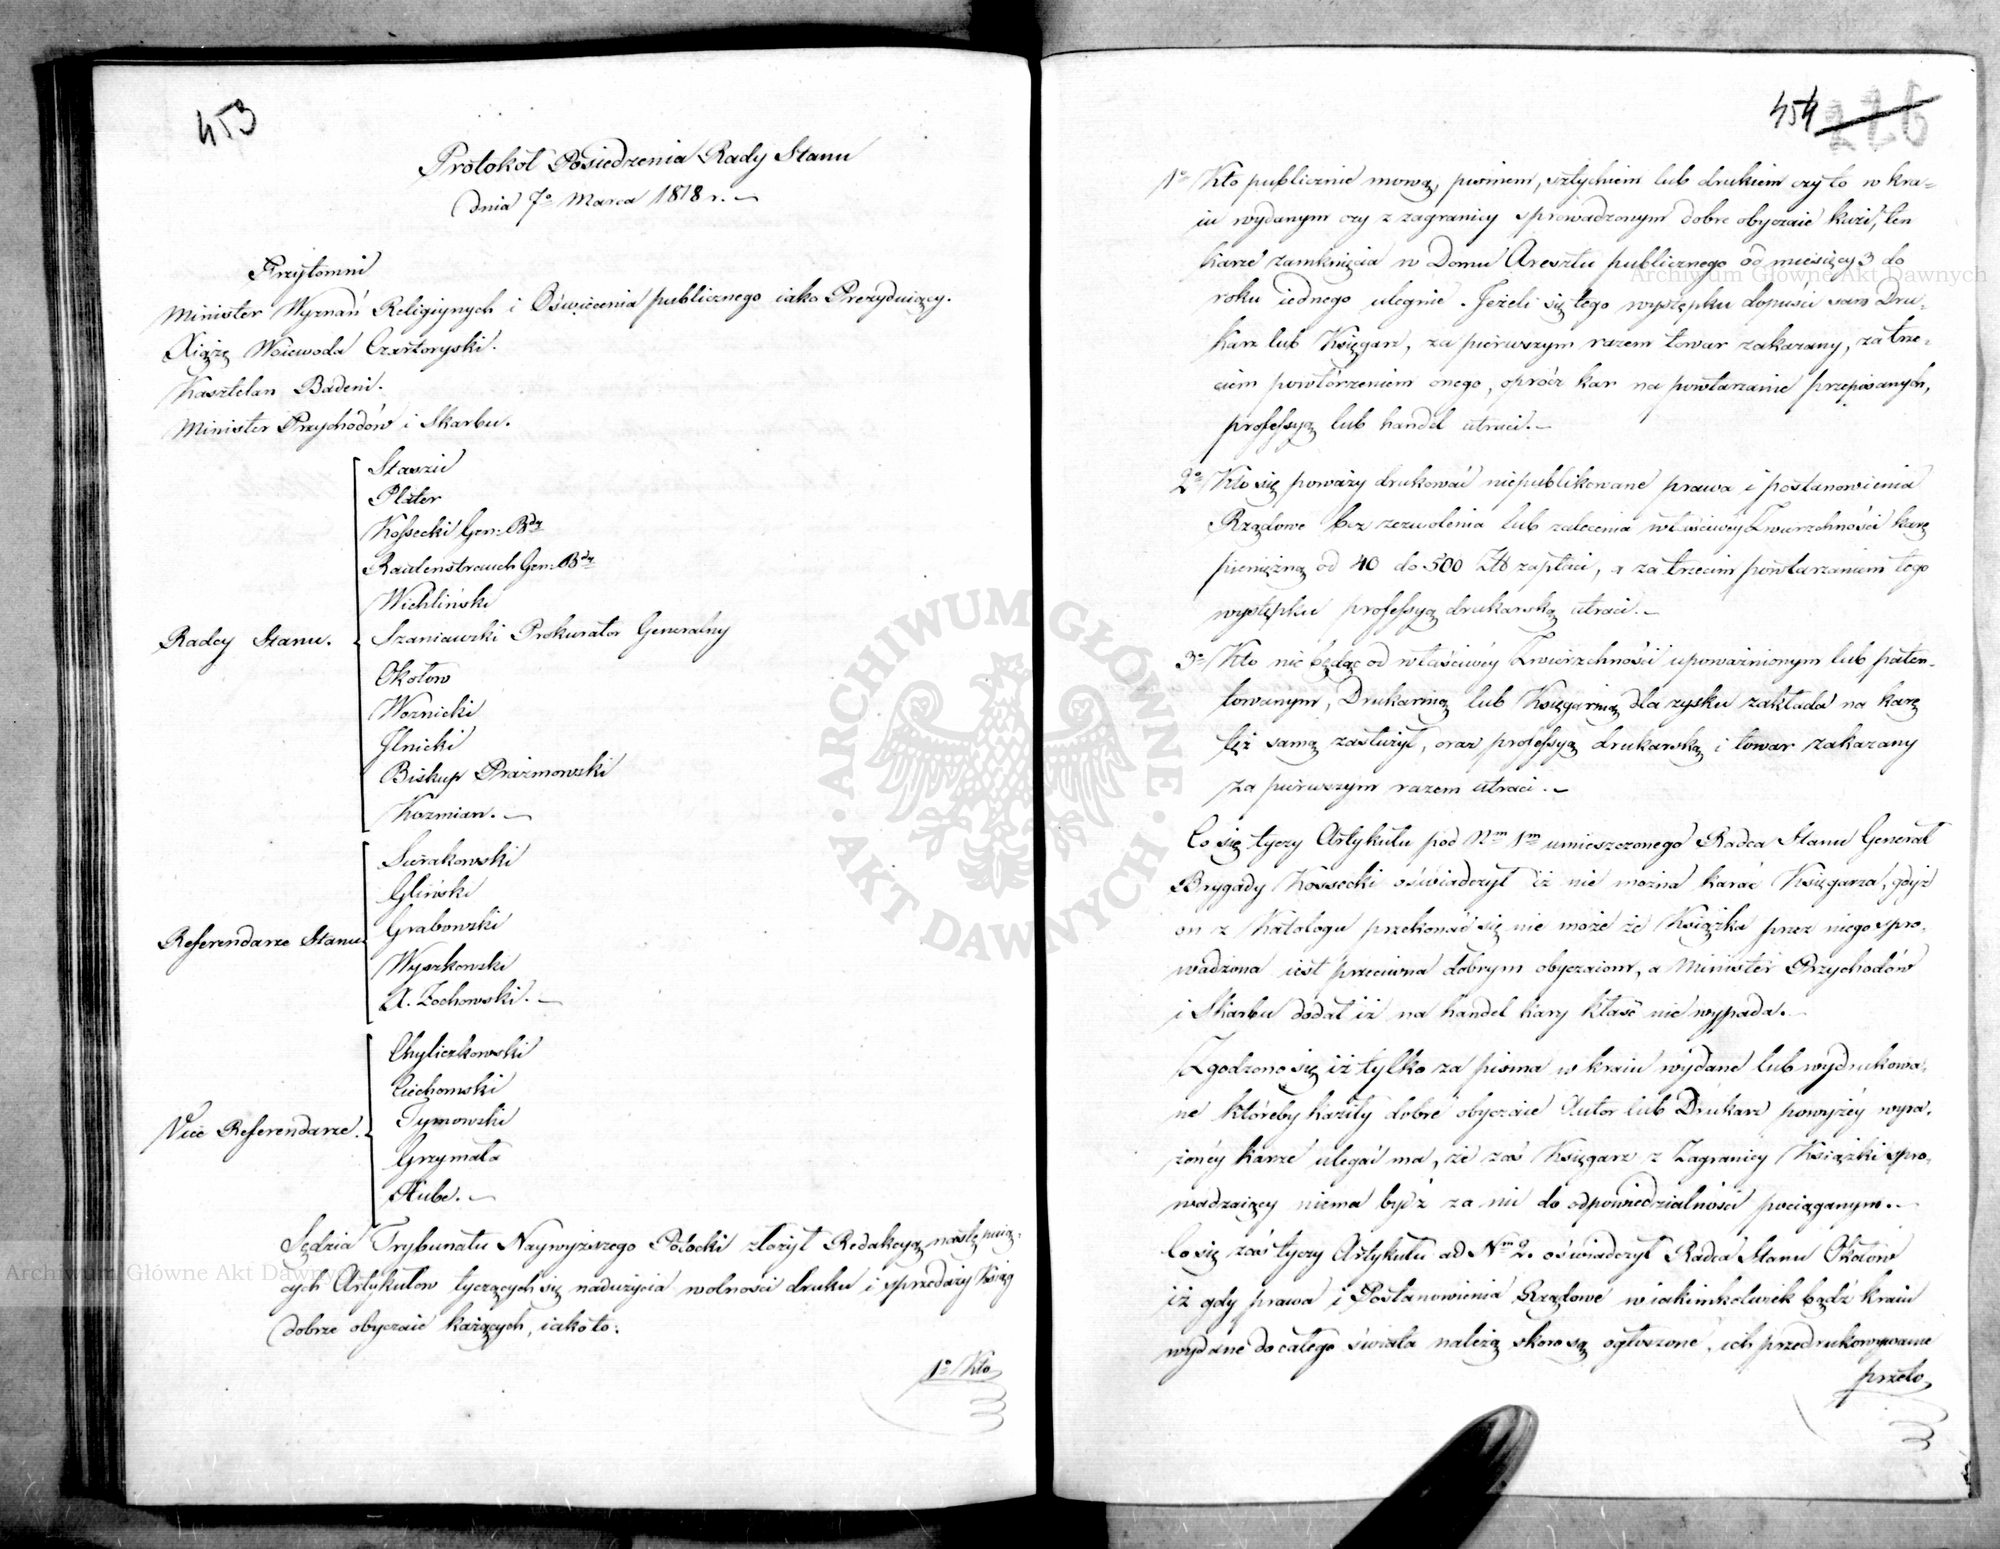 453
Protokół Posiedzenia Rady Stanu
Dnia 7º Marca 1818 r.
Przytomni
Minister Wyznań Religiynych i Oświecenia publicznego iako Prezyduiący.
Xiążę Woiewoda Czartoryski.
Kasztelan Badeni.
Minister Przychodów i Skarbu.
Radcy Stanu.
Staszic
Plater
Kossecki Gen: Bdy
Rautenstrauch Gen: Bdy
Wichliński
Szaniawski Prokurator Generalny
Okołow
Woznicki
Ilnicki
Biskup Prażmowski
Koźmian.
Referendarze Stanu
Surakowski
Gliński
Grabowski
Wyszkowski
X. Zochowski.
Vice Referendarze.
Chyliczkowski
Ciechomski
Tymowski
Grzymała
Hube.
Sędzia Trybunału Naywyższego Potocki złożył Redakcyą następuią-
cych Artykułow tyczących się nadużycia wolności druku i sprzedaży Xiąg
dobre obyczaie każących, iako to:
1º Kto
454 226
1º Kto publicznie mową, pismem, sztychiem lub drukiem czy to w kra-
iu wydanym czy z zagranicy sprowadzonym dobre obyczaie kazi, ten
karze zamknięcia w Domu Aresztu publicznego od miesięcy 3 do
roku iednego ulegnie. Jeżeli się tego występku dopuści sam Dru-
karz lub Księgarz, za pierwszym razem towar zakazany, za trze-
ciem powtórzeniem onego, oprócz kar na powtarzanie przepisanych,
professyą lub handel utraci.
2º Kto się poważy drukować niepublikowane prawa i postanowienia
Rządowe bez zezwolenia lub zalecenia właściwey Zwierzchności karę
pieniężną od 40 do 500 Zł zapłaci, a za trzecim powtarzaniem tego
występku professyą drukarską utraci.
3º Kto nie będąc od właściwey Zwierzchności upoważnionym lub paten-
towanym, Drukarnią lub Księgarnią dla zysku zakłada na karę
tęż samą zasłużył, oraz professyą drukarską i towar zakazany
za pierwszym razem utraci.
Co się tyczy Artykułu pod Nm 1m umieszczonego Radca Stanu Generał
Brygady Kossecki oświadczył iż nie można karać Księgarza, gdyż
on z Katalogu przekonać się nie może że Książka przez niego spro-
wadzona iest przeciwna dobrym obyczaiom, a Minister Przychodów
i Skarbu dodał iż na handel kary kłaść nie wypada.
Zgodzono się iż tylko za pisma w kraiu wydane lub wydrukowa-
ne któreby kaziły dobre obyczaie Autor lub Drukarz powyżéy wyra-
żonéy karze ulegać ma, że zaś Księgarz z Zagranicy Książki spro-
wadzaiący niema być za nie do odpowiedzialności pociąganym.
Co się zaś tyczy Artykułu ad Nm 2. oświadczył Radca Stanu Okołow
iż gdy prawa i Postanowienia Rządowe w iakimkolwiek bądź kraiu
wydane do całego świata należą skoro są ogłoszone, ich przedrukowywanie
przeto
Archiwum Główne Akt Dawnych
Archiwum Główne Akt Dawnych
ARCHIWUM GŁÓWNE AKT DAWNYCH